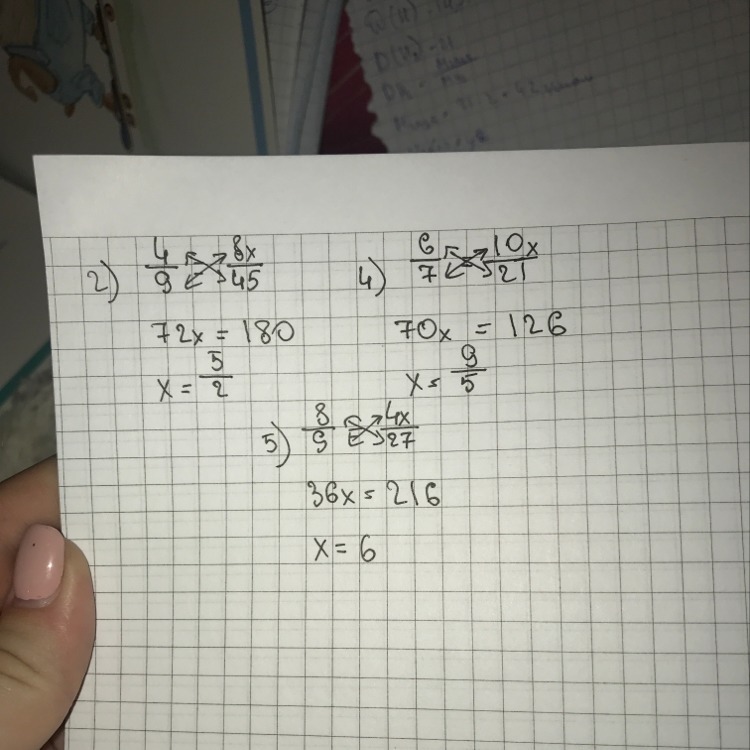 D(H₂)
2) 4/9 8x/45
72x = 180
x = 5/2
4) 6/7 10x/21
70x = 126
x = 9/5
5) 8/9 4x/27
36x = 216
x = 6